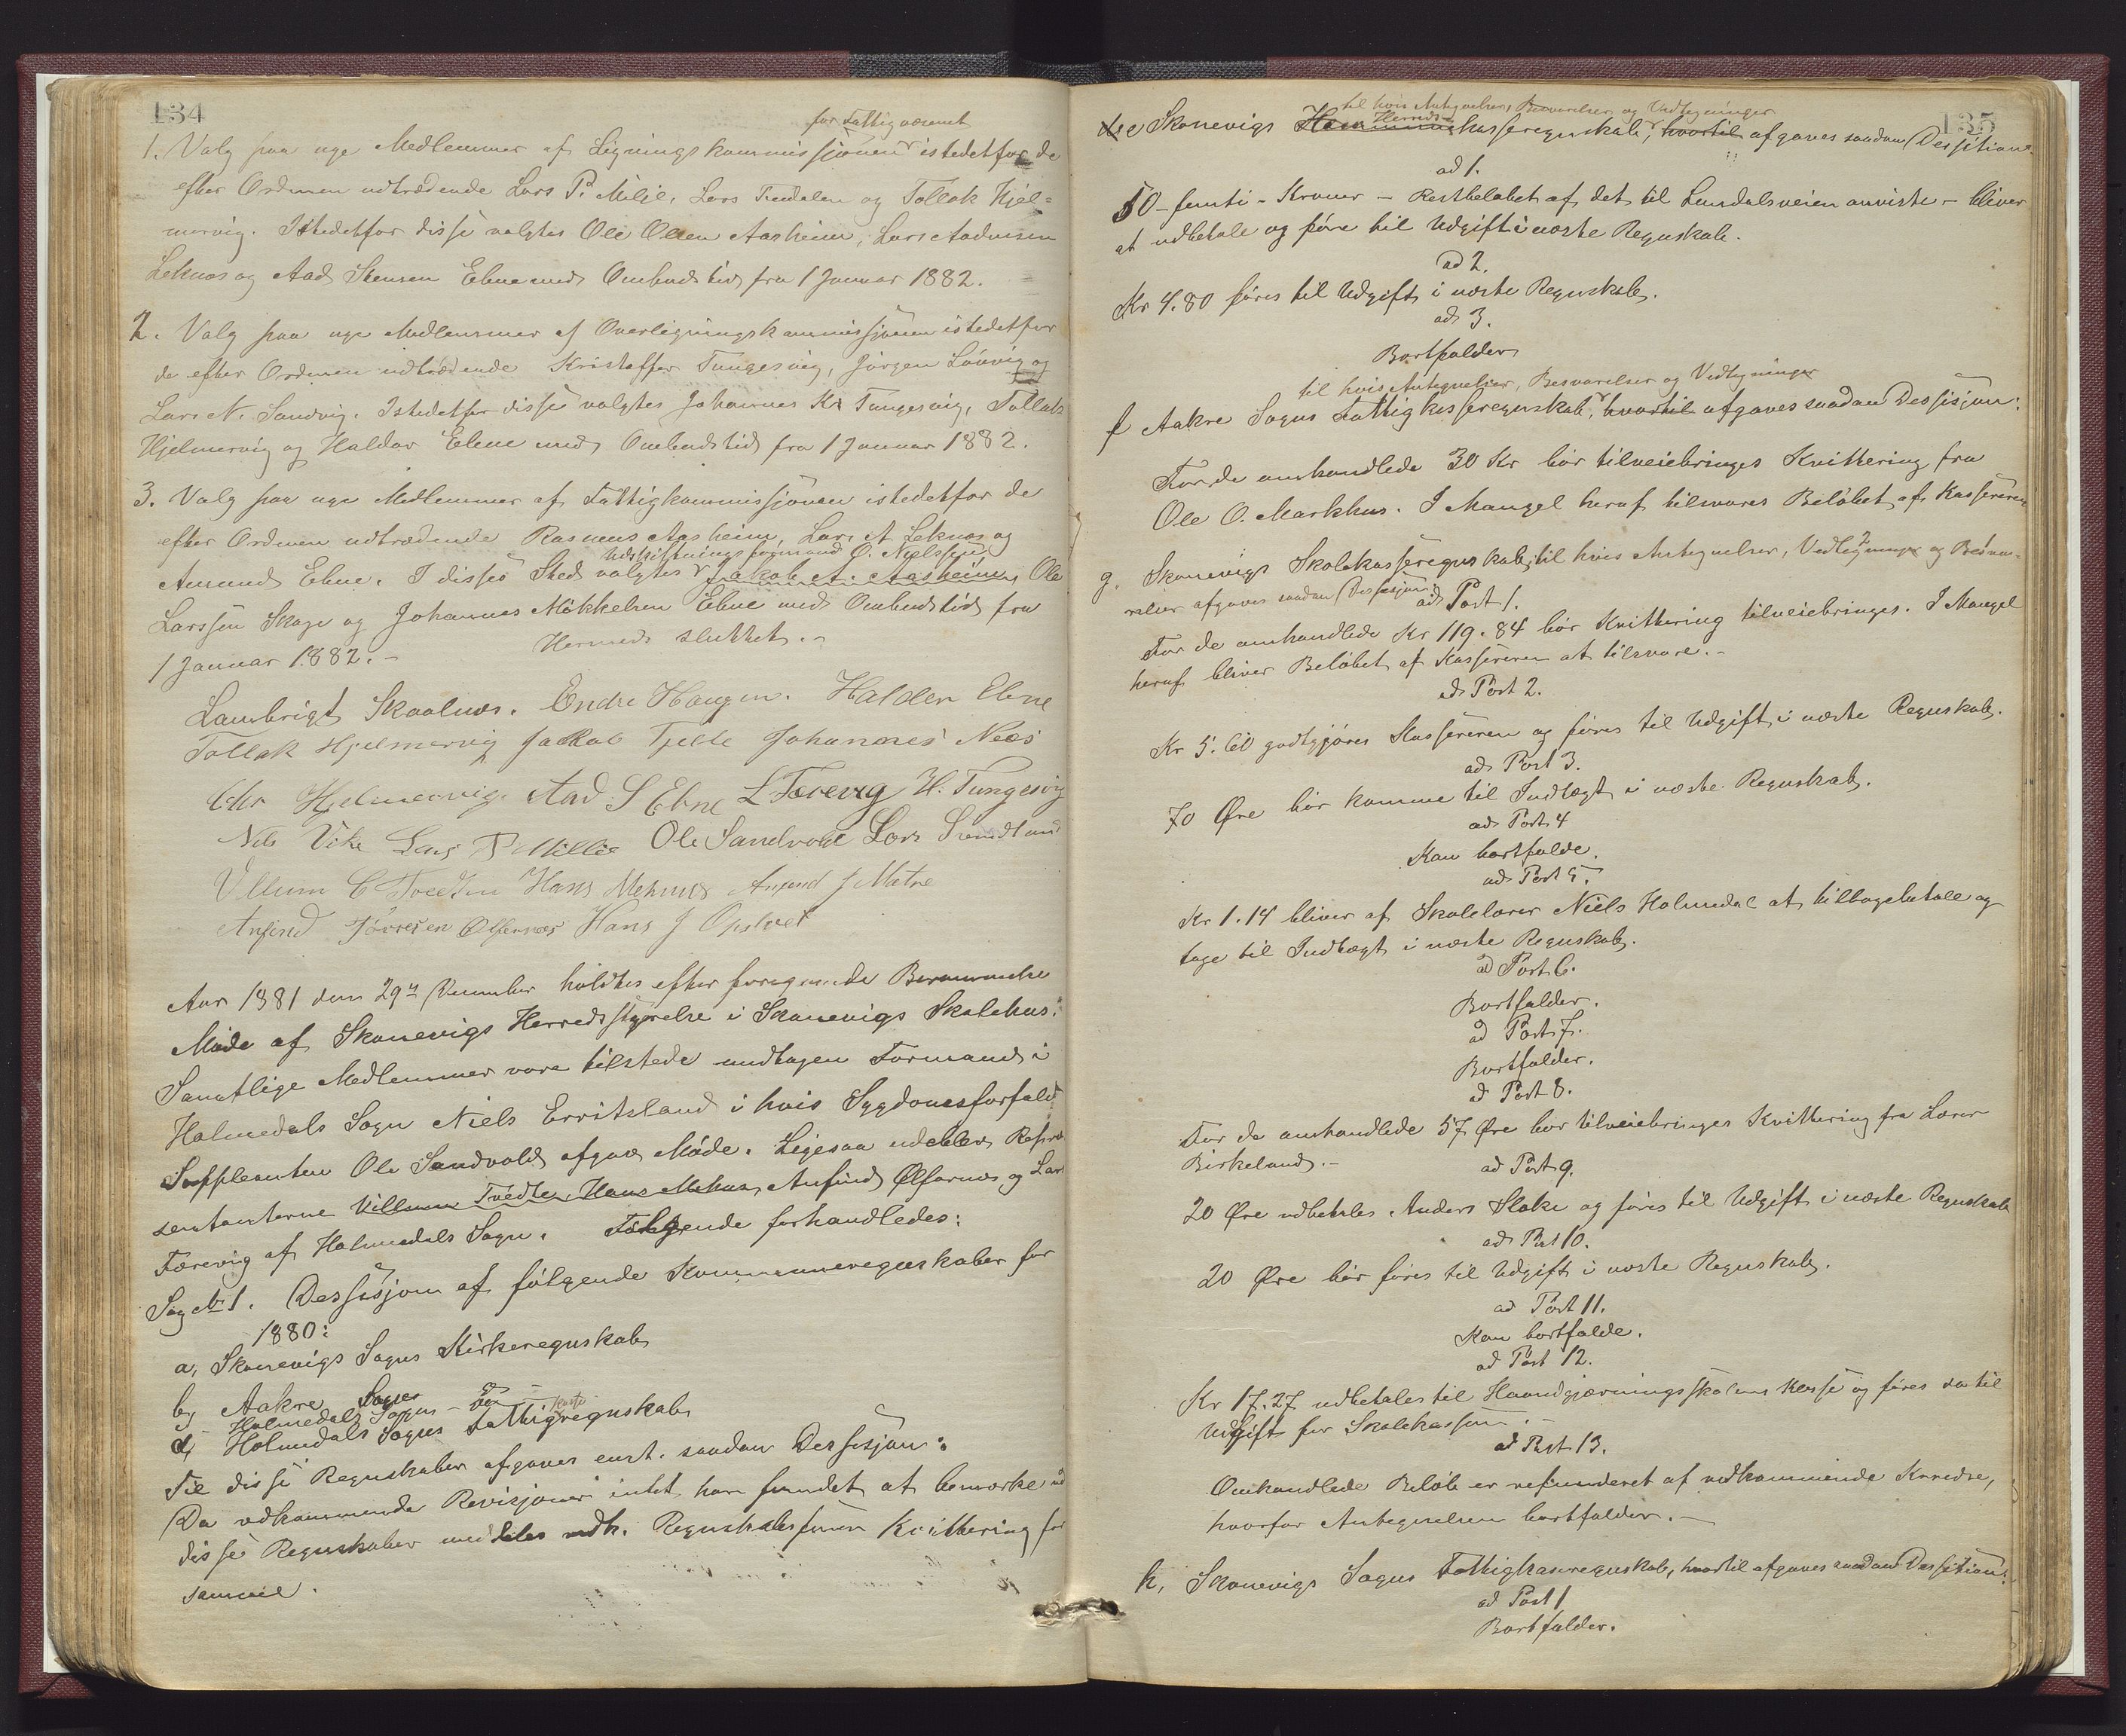 134
for Fattigvæsenet
1. Valg paa nye Medlemmer af Ligningskommissjonen istedetfor de
efter Ordenen udtrædende Lars P. Milje, Lars Tindalen og Tollak Hjel-
mervig. Istedetfor disse valgtes Ole Olsen Aasheim, Lars Aadnesen
Leknæs og Aad Stensen Ebne med Ombudstid fra 1 Januar 1882.
2. Valg paa nye Medlemmer af Overligningskommissjonen istedetfor
de efter Ordenen udtrædende Kristoffer Tungesvig, Jørgen Løvvig og
Lars N. Sandvig. Istedetfor disse valgtes Johannes K. Tungesvig, Tollak
Hjelmervig og Haldor Ebne med Ombudstid fra 1 Januar 1882.
3. Valg paa nye Medlemmer af Fattigkommissjonen istedetfor de
efter Ordenen udtrædende Rasmus Aasheim, Lars A Leknæs og
Udskiftningsformand O. Nielssen
Amund Ebne. I disses Sted valgtes Jakob A. Aasheim, Ole
Larssen Skage og Johannes Mökkelsen Ebne med Ombudstid fra
1 Januar 1882.- Hermed sluttet.-
Lambrigt Skaalnes. Endre Haugen. Haldor Ebne
Tollak Hjelmervig Jakob Tjelle Johannes Næs
Chr Hjelmervig. Aad S Ebne L Færevig H. Tungesvig
Nils Vike Lars P Millie Ole Sandvold Lars Svendland
Villum C Tvedten Hans Mehuus Anfind J Matre
Anfind Törresen Ølfernæs Hans J Opstvet
Aar 1881 den 29de December holdtes efter foregaaende Berammelse
Møde af Skonevigs Herredsstyrelse i Skonevigs Skolehus:
Samtlige Medlemmer vare tilstede undtagen Formand i
Holmedals Sogn Niels Erritsland i hvis Sygdomsforfald
Suppleanten Ole Sandvold afgav Møde. Ligesaa udeblev Repræ-
sentanterne Villum Tvedte, Hans Mehus, Anfind Ølfarnæs og Lars
Færevig af Holmedals Sogn. Følgende forhandledes:
Sag No 1. Dessisjom af følgende Kommuneregnskaber for
1880:
a, Skonevigs Sogns Kirkeregnskab
b, Aakre Sogns
c, Holmedals Sogns - Do -
kasse
d, Holmedals Sogns Fattigregnskab
Til disse Regnskaber afgaves enst. saadan Dessisjon:
Da vedkommende Revisjoner intet har fundet at bemærke ved
disse Regnskaber meddeles vedk. Regnskabsfører Kvittering for
samme.
135
til hvis Antegnelser, Besvarelser og Vedtegninger
Herreds-
e Skonevigs Kommunekasseregnskab, hvortil afgaves saadan Dessition:
ad 1.
50 - femti - Kroner - Restbeløbet af det til Lundalsveien anviste - bliver
at udbetale og føre til Udgift i næste Regnskab.
ad 2.
Kr 4.80 føres til Udgift i næste Regnskab.
ad 3.
Bortfalder
til hvis Antegnelser, Besvarelser og Vedtegninger
f Aakre Sogns Fattigkasseregnskab, hvortil afgaves saadan Dessisjon:
For de omhandlede 30 Kr bør tilveiebringes Kvittering fra
Ole O. Markhus. I Mangel heraf tilsvares Beløbet af Kassereren
g. Skonevigs Skolekasseregnskab, til hvis Antegnelser, Vedtegninger og Besva-
relser afgaves saadan Dessisjon:
ad Post 1.
For de omhandlede Kr 119.84 bør Kvittering tilveiebringes. I Mangel
heraf bliver Beløbet af Kassereren at tilsvare.-
ad Post 2.
Kr 5.60 godtgjøres Kassereren og føres til Udgift i næste Regnskab.
ad Post 3.
70 Øre bør komme til Indtægt i næste Regnskab.
ad Post 4
Kan bortfalde.
ad Post 5.
Kr 1.14 bliver af Skolelærer Niels Holmedal at tilbagebetale og
tage til Indtægt i næste Regnskab.
ad Post 6.
Bortfalder.
ad Post 7.
Bortfalder.
ad Post 8.
For de omhandlede 57 Øre bør tilveiebringes Kvittering fra Lærer
Birkeland.-
ad Post 9.
20 Øre udbetales Anders Sløke og føres til Udgift i næste Regnskab
ad Post 10.
20 Øre bør føres til Udgift i næste Regnskab.
ad Post 11.
Kan bortfalde.
ad Post 12.
Kr 17.27 udbetales til Haandgjærningsskolens Kasse og føres saa til
Udgift for Skolekassen.-
ad Post 13.
Omhandlede Beløb er refunderet af vedkommende Kredse,
hvorfor Antegnelsen bortfalder.-
h, Skonevigs Sogns Fattigkasseregnskab, hvortil afgaves saadan Dessition:
ad Post 1
Bortfalder.